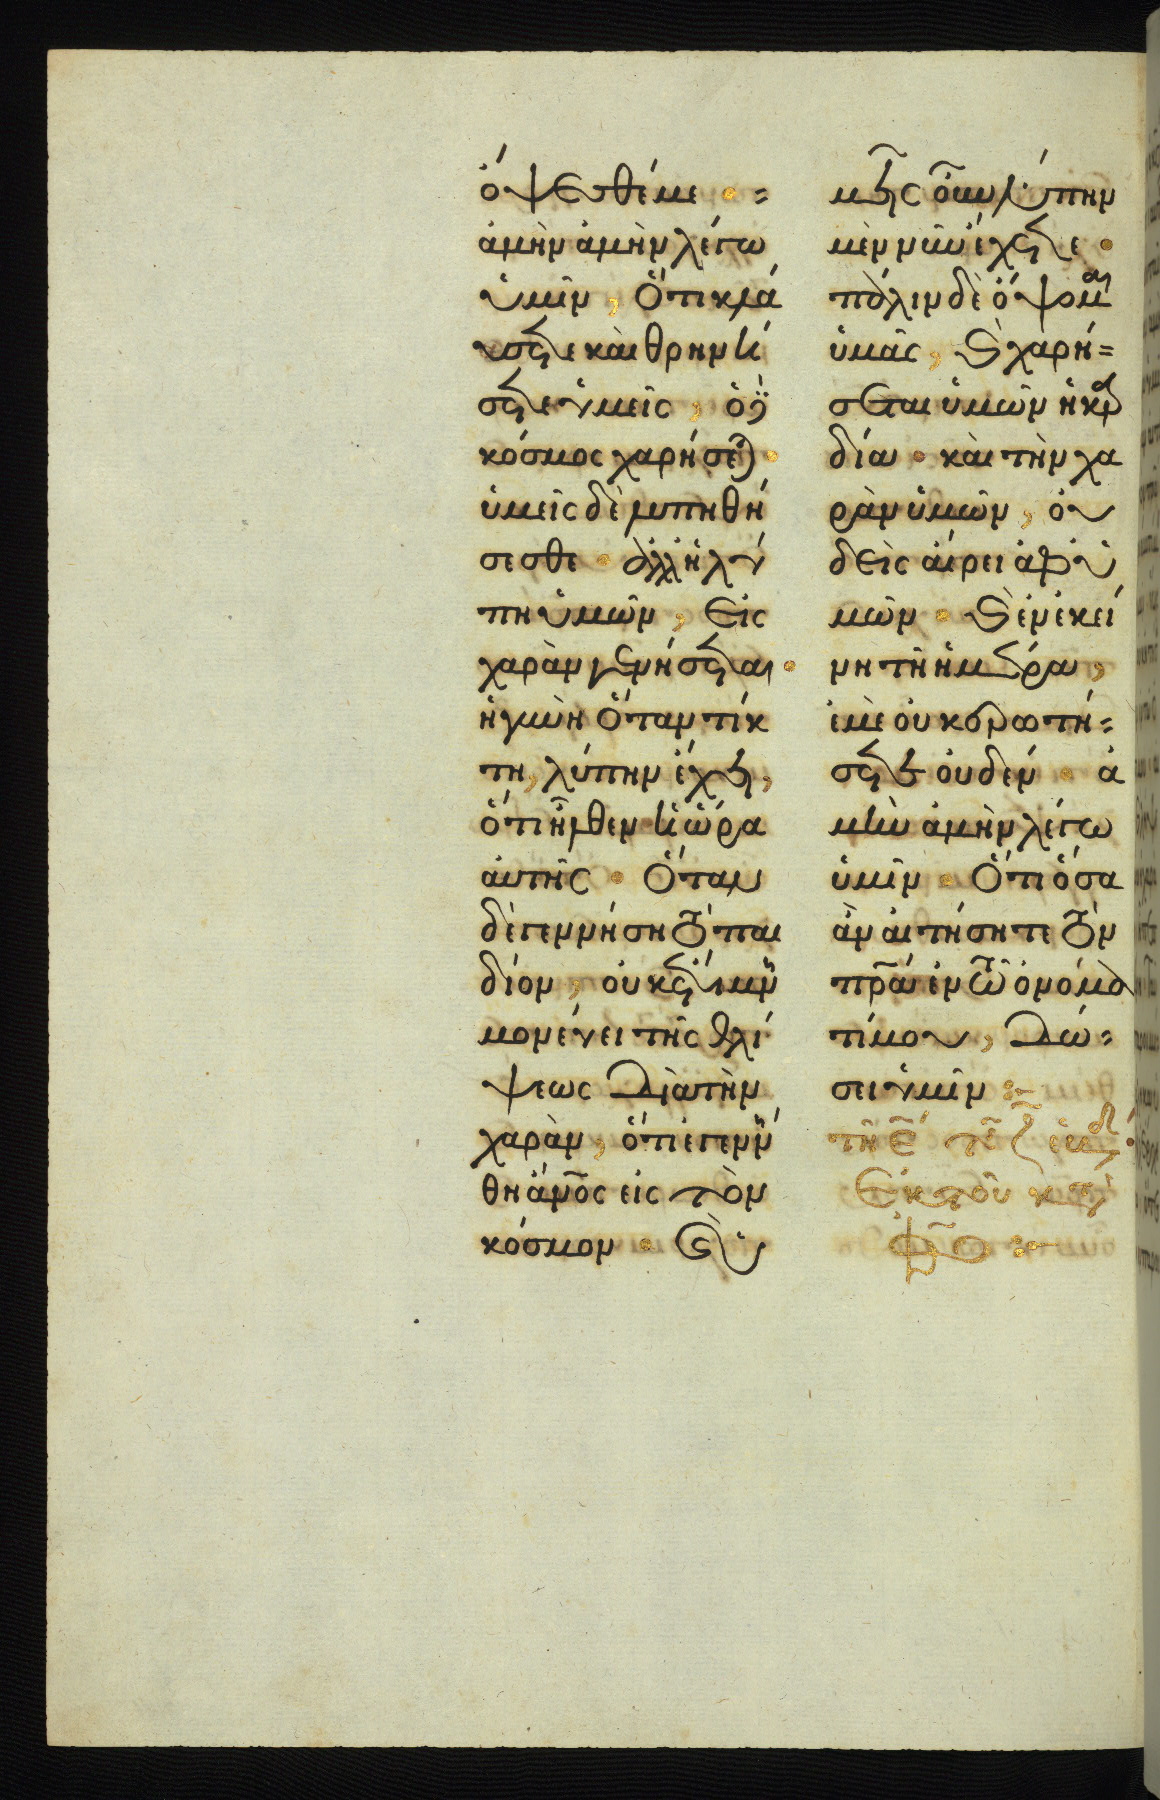 ὄψεσθέ με
ἀμὴν ἀμὴν λέγω
ὑμῖν, ὅτι κλά
υσετε καὶ θρηνή
σετε ὑμεῖς, ὁ δὲ
κόσμος χαρήσεται
ὑμεῖς δὲ λυπηθή
σεσθε · ἀλλ' ἡ λύ
πη ὑμῶν, εἰς
χαρὰν γενήσεται ·
ἡ γυνὴ ὅταν τίκ
τη, λύπην ἔχει,
ὅτι ἦλθεν ἡ ὥρα
αὐτῆς · ὅταν
δὲ γεννήση τὸ παι
δίον, οὐκ ἔτι μνη
μονεύει τῆς θλί
ψεως διὰ τὴν
χαρὰν, ὅτι ἐγεννή
θη ἄνος εἰς τὸν
κόσμον · καὶ ὑ
μεῖς οὖν λύπην
μὲν νῦν ἔχετε ·
πάλιν δὲ ὄψομαι
ὑμᾶς, καὶ χαρή=
σεται ὑμῶν ἡ καρ
δία · καὶ τὴν χα
ρὰν ὑμῶν, οὐ
δεὶς αἴρει ἀφ' ὑ
μῶν · καὶ ἐν ἐκεί
νη τῆ ἡμέρα,
ἐμὲ οὐκ ἐρωτή=
σετε οὐδέν · ἀ
μὴν ἀμὴν λέγω
ὑμῖν · ὅτι ὅσα
ἂν αἰτήσητε τὸν
πρα ἐν τῶ ὀνόμα
τί μου, δώ=
σει ὑμῖν
τῆ ε τῆς ζ ἑβδ
ἐκ τοῦ κατὰ